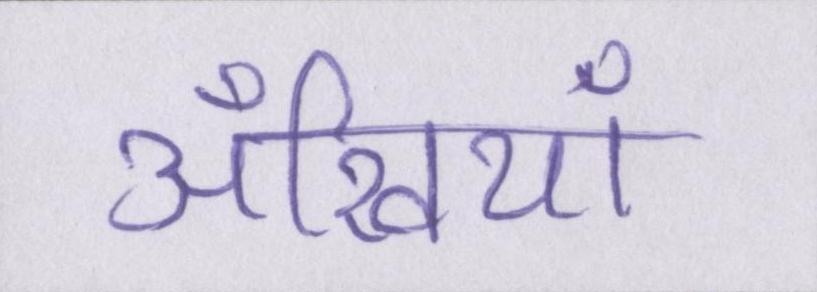 अँखियाँ